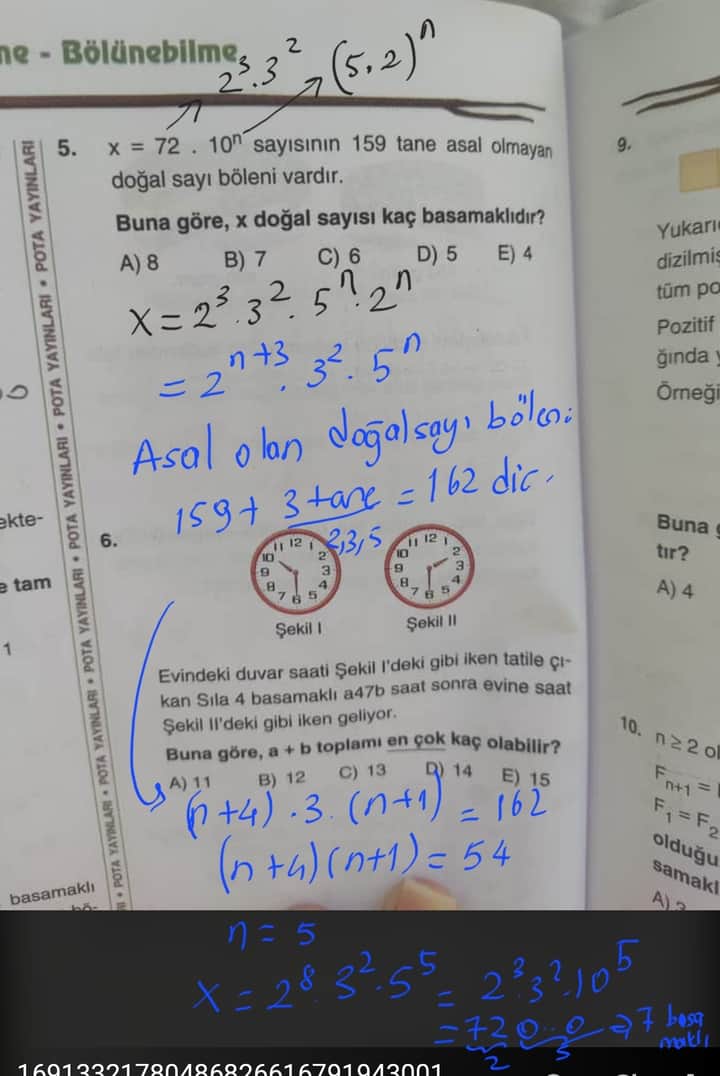 ne - Bölünebilme
2³.3² (5.2)ⁿ
POTA YAYINLARI • POTA YAYINLARI • POTA YAYINLARI • POTA YAYINLARI • POTA YAYINLARI • POTA YAYINLARI
5. x = 72 . 10ⁿ sayısının 159 tane asal olmayan
doğal sayı böleni vardır.
Buna göre, x doğal sayısı kaç basamaklıdır?
A) 8 B) 7 C) 6 D) 5 E) 4
X = 2³.3².5ⁿ.2ⁿ
= 2ⁿ⁺³.3².5ⁿ
Asal olan doğal sayı böleni
159 + 3 tane = 162 dir.
2,3,5
6.
11 12 1
10 2
9 3
8 4
7 6 5
11 12 1
10 2
9 3
8 4
7 6 5
Şekil I Şekil II
Evindeki duvar saati Şekil I'deki gibi iken tatile çı-
kan Sıla 4 basamaklı a47b saat sonra evine saat
Şekil II'deki gibi iken geliyor.
Buna göre, a + b toplamı en çok kaç olabilir?
A) 11 B) 12 C) 13 D) 14 E) 15
(n+4).3.(n+1) = 162
(n+4)(n+1) = 54
n = 5
X = 2⁸.3².5⁵ = 2³.3².10⁵
= 720...0 → 7 basa
maklı
2 5
ekte-
e tam
1
basamaklı
9.
Yukarı
dizilmiş
tüm po
Pozitif
ğında y
Örneği
Buna g
tır?
A) 4
10. n ≥ 2 ol
Fₙ₊₁ =
F₁ = F₂
olduğu
samakl
A) 3
16913321780486826616791943001